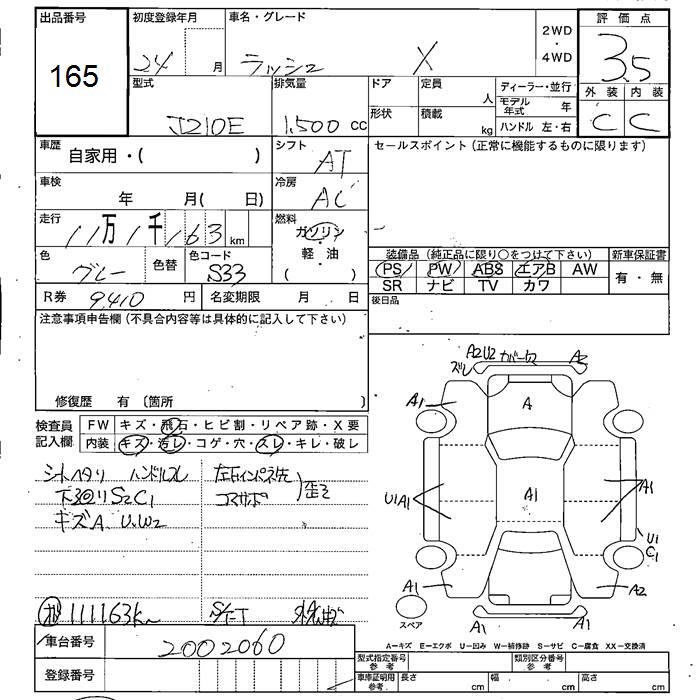 出品番号 165
初度登録年月 24 月
車名・グレード ラッシュ X
2WD ・ 4WD
評価点 3.5
外装 C 内装 C
型式 J210E
排気量 1,500 cc
ドア 形状
定員 人
積載 kg
ディーラー・並行
モデル年式 年
ハンドル 左・右
車歴 自家用・( )
シフト AT
セールスポイント (正常に機能するものに限ります)
車検 年 月( 日)
冷房 AC
走行 11万1千163 km
燃料 ガソリン 軽・油 ( )
色 グレー 色替 色コード S33
装備品 (純正品に限り○をつけて下さい) 新車保証書
PS PW ABS エアB AW 有・無
SR ナビ TV カワ
R券 9,410 円 名変期限 月 日
後日品
注意事項申告欄 (不具合内容等は具体的に記入して下さい)
修復歴 有 〔箇所 〕
検査員記入欄 FW キズ・飛石・ヒビ割・リペア跡・X要
内装 キズ・汚レ・コゲ・穴・スレ・キレ・破レ
シートヘタリ ハンドルスレ
下廻りS2C1
キズA U、W2
左右インパネ先
コアサポ
歪ミ
A2U2 カバー欠 A2
ズレ
A1
A
U1A1
A1
A1
U1
C1
A1
A2
A1
A1
スペア
111163km
S/T-T
A=キズ E=エクボ U=凹み W=補修跡 S=サビ C=腐食 XX=交換済
車台番号 2002060
登録番号
型式指定番号 参考 類別区分番号 参考
車庫証明用 参考 長さ cm 幅 cm 高さ cm